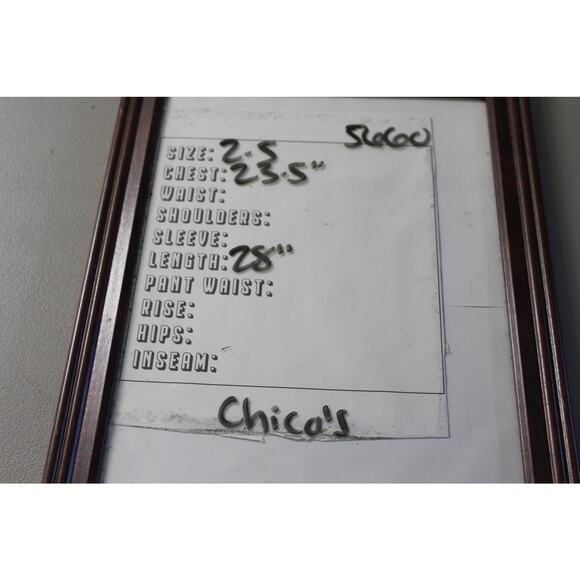 5660
SIZE: 2.5
CHEST: 23.5"
WAIST:
SHOULDERS:
SLEEVE:
LENGTH: 28"
PANT WAIST:
RISE:
HIPS:
INSEAM:
Chico's